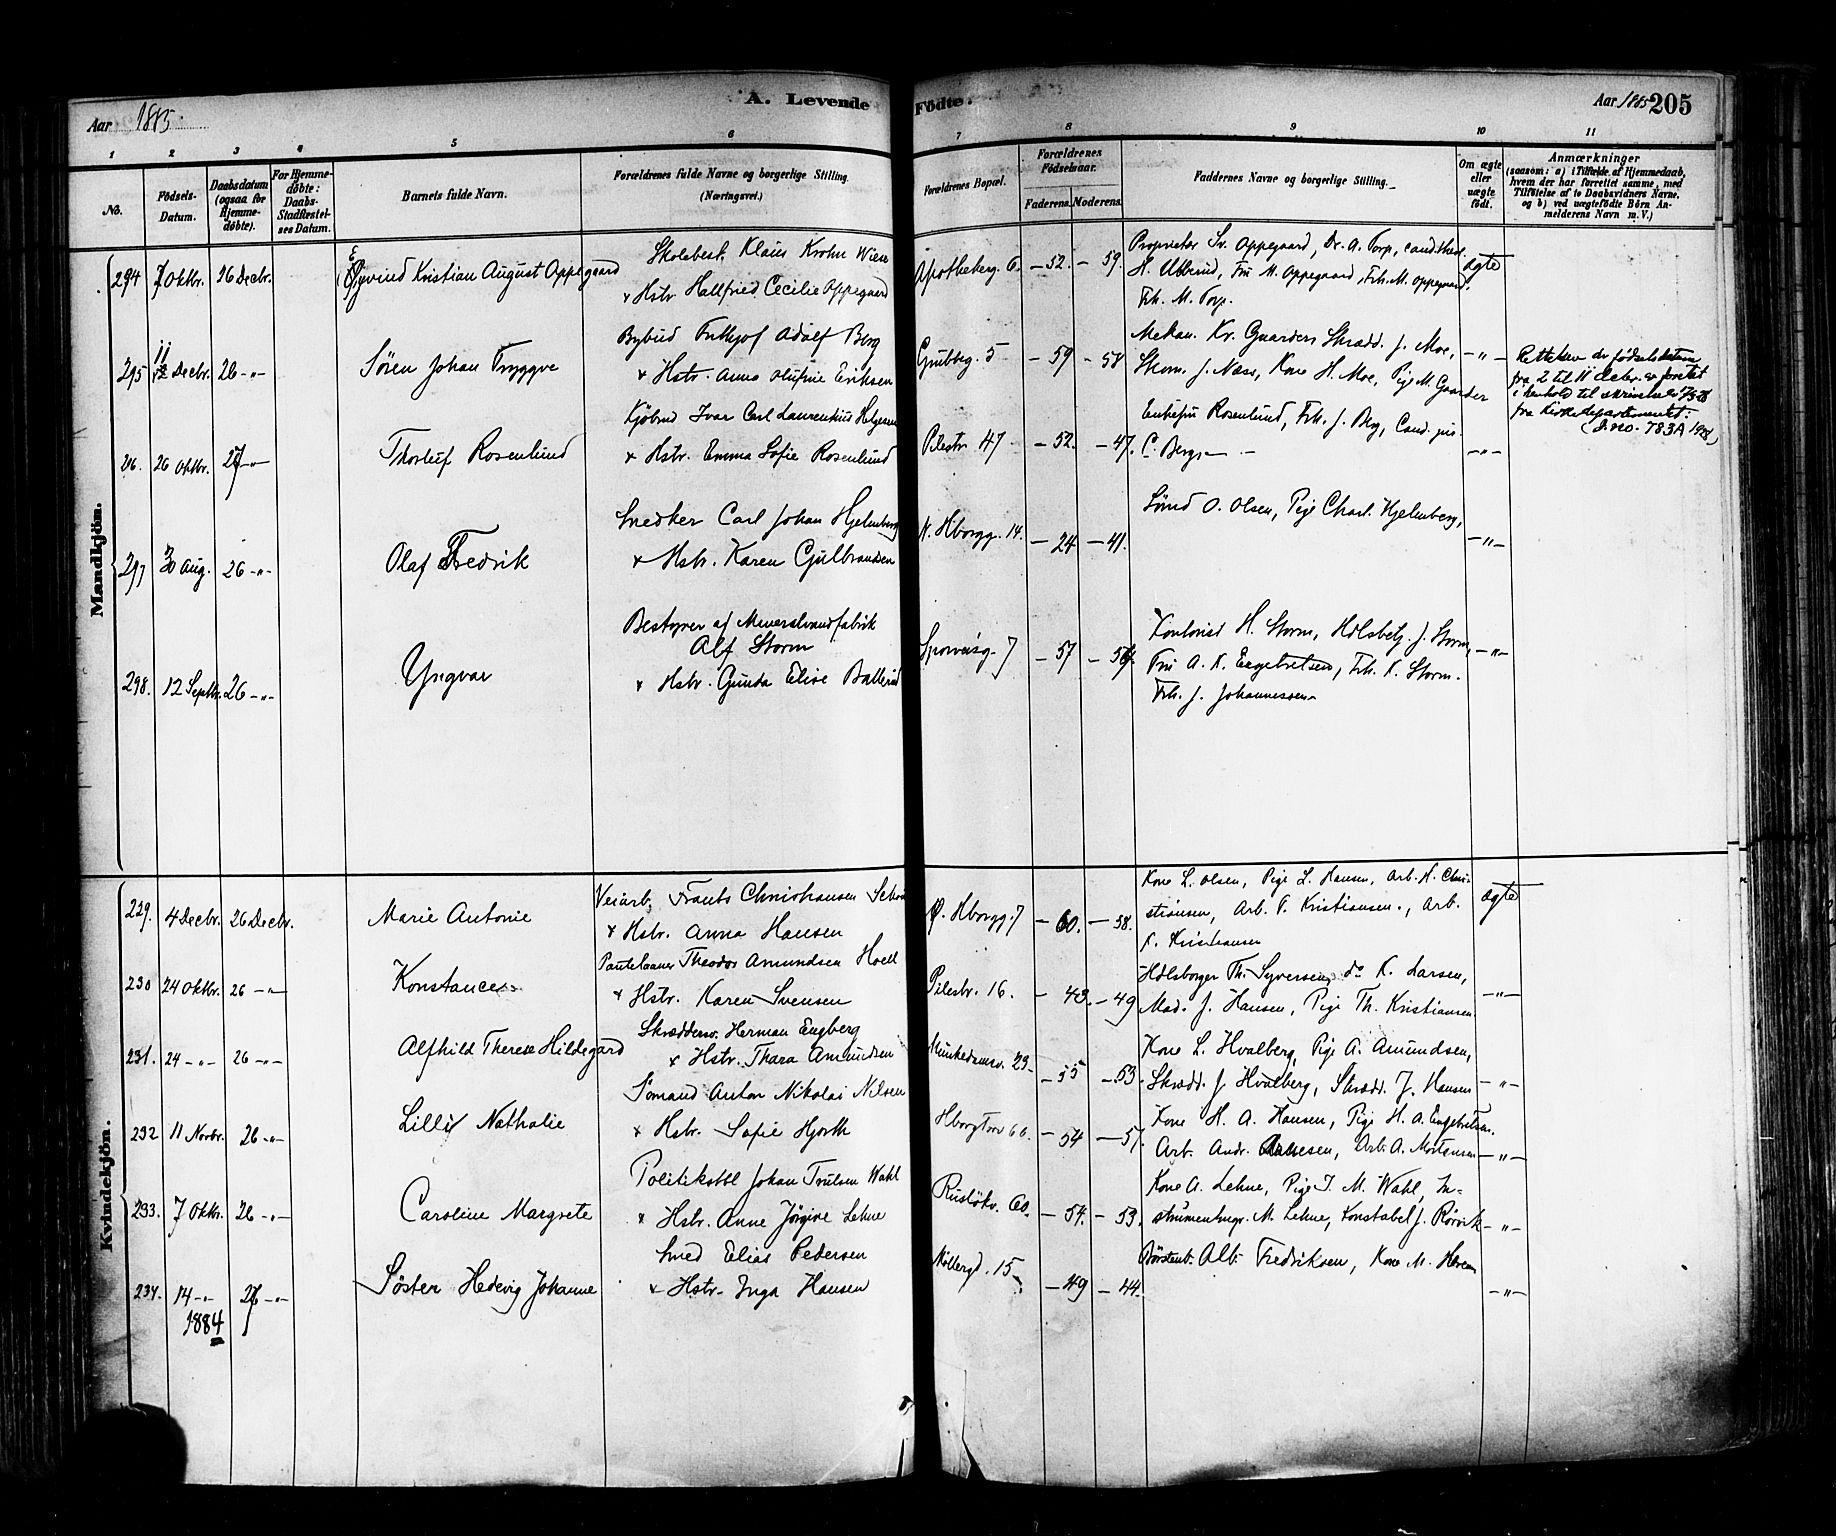 Aar 1885.
A. Levende Födte.
Aar 1885 205
1 2 3 4 5 6 7 8 9 10 11
No.
Födsels-Datum.
Daabsdatum (ogsaa for Hjemme-döbte).
For Hjemme-döbte: Daabs-Stadfæstel-ses Datum.
Barnets fulde Navn.
Forældrenes fulde Navne og borgerlige Stilling. (Næringsvei.)
Forældrenes Bopæl.
Forældrenes Födselsaar.
Faderens. Moderens.
Faddernes Navne og borgerlige Stilling.
Om ægte eller uægte födt.
Anmærkninger
(saasom: a) i Tilfælde af Hjemmedaab, hvem der har forrettet samme, med Tilföielse af to Daabsvidners Navne, og b) ved uægtefödte Börn An-melderens Navn m. V.)
Mandkjön.
294 7 Oktbr. 26 Decbr. Øyvind Kristian August Oppegaard
Skolebest. Klaus Krohn Wiese
+ Hstr. Hallfried Cecilie Oppegaard
Apothekerg. 6. – 52. – 59.
Proprietær Sv. Oppegaard, Dr. A. Torp, cand. theol.
H. Ullerud, Fru M. Oppegaard, Frk. M. Oppegaard,
Frk. M. Torp.
ægte
295 11 Decbr. 26 –"– Sören Johan Tryggve
Bybud Frithjof Adolf Berg
+ Hstr. Anna Olufine Eriksen
Grubbeg. 5 – 59 – 58
Mekan. Kr. Gaarder, Skræd. J. Moe,
Skom. J. Næss, Kone H. Moe, Pige M. Gaarder
–"–
Rettelsen av födselsdatum
fra 2 til 11 decbr. er foretat
i henhold til skrivelse
fra Kirkedepartementet.
(J. no. 783A 1928)
26 Oktbr. 27 –"– Thorleif Rosenlund
Kjöbmd Ivar Carl Laurentius Helgesen
+ Hstr. Emma Sofie Rosenlund
Pilestr. 47 – 52. – 47.
Enkefru Rosenlund, Frk. J. Berg, Cand. jur.
C. Berg
–"–
297 30 Aug. 26 –"– Olaf Fredrik
Snedker Carl Johan Hjelmberg
+ Hstr. Karen Gulbrandsen
N. Hborgg. 14. – 24 – 41.
Sömd O. Olsen, Pige Charl. Hjelmberg,
–"–
298. 12 Septbr. 26 –"– Yngvar
Bestyrer af Mineralvandfabrik
Alf Storm
+ Hstr. Gunda Elise Ballerud
Sporveisg. 7 – 57
Kontorist H. Storm, Hdlsbetj. J. Storm,
Fru A. K. Engebretsen, Frk. K. Storm.
Frk. J. Johannessen
–"–
Kvindekjön.
229. 4 Decbr. 26 Decbr. Marie Antonie
Veiarb. Frants Christiansen
+ Hstr. Anna Hansen
Ø. Hborgg. 7 – 60. – 58.
Kone L. Olsen, Pige L. Hansen, Arb. H. Chri-
stiansen, Arb. P. Kristiansen., Arb.
K. Kristiansen
ægte
230 24 Oktbr. 26 –"– Konstance
Pantelaaner Theodor Amundsen Hoell
+ Hstr. Karen Svensen
Pilestr. 16. – 43. – 49
Hdlsborger Th. Syversen, do K. Larsen,
Mad. J. Hansen, Pige Th. Kristiansen
–"–
231. 24 –"– 26 –"– Alfhild Therese Hildegard
Skræddersv. Herman Engberg
+ Hstr. Thara Amundsen
Munkedamsv. 23 – 55 – 53.
Kone L. Hvalberg, Pige A. Amundsen,
Skræd. J. Hvalberg, Skræd. J. Hansen
–"–
232 11 Novbr. 26 –"– Lilly Nathalie
Sömand Anton Nikolai Nilsen
+ Hstr. Sofie Hjorth
Hborgtorv 6 – 54 – 57.
Kone H. A. Hansen, Pige H. A. Engebretsen.
Arb. Andr. Arnesen, Arb. A. Mortensen
–"–
233. 7 Oktbr. 26 –"– Caroline Margrete
Politikstbl Johan Trulsen Wahl
+ Hstr. Anne Jörgine Lehne
Ruslökv. 60. – 54. – 53.
Kone A. Lehne, Pige J. M. Wahl, In-
strumentmgr. M. Lehne, Konstabel J. Rörvik
–"–
234. 14 –"– 1884 26 –"– Söster Hedevig Johanne
Smed Elias Pedersen
+ Hstr. Inga Hansen
Möllergd. 15 – 49 – 44.
Börstenb. Alb. Fredriksen, Kone M.
–"–